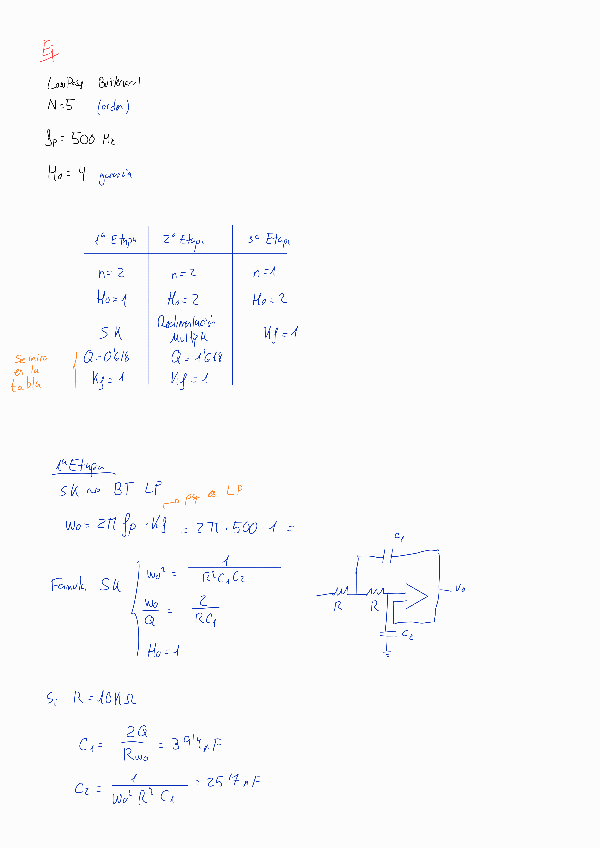 Ej
LowPass Butterworth
N=5 (orden)
fp = 500 Hz
Ho = 4 ganancia
1ª Etapa 2ª Etapa 3ª Etapa
n=2 n=2 n=1
Ho=1 Ho=2 Ho=2
SK Realimentación Múltiple Kf=1
Se mira en la tabla
Q=0'618 Q=1'618
Kf=1 Kf=1
1ª Etapa
SK no BT LP
pq es LP
wo = 2π fp · Kf = 2π · 500 · 1 =
Formula SK
wo² = 1 / R²C1C2
wo / Q = 2 / RC1
Ho=1
C1
R R C2 Vo
Si R=10KΩ
C1 = 2Q / Rwo = 39'4 nF
C2 = 1 / wo² R² C1 = 25'7 nF